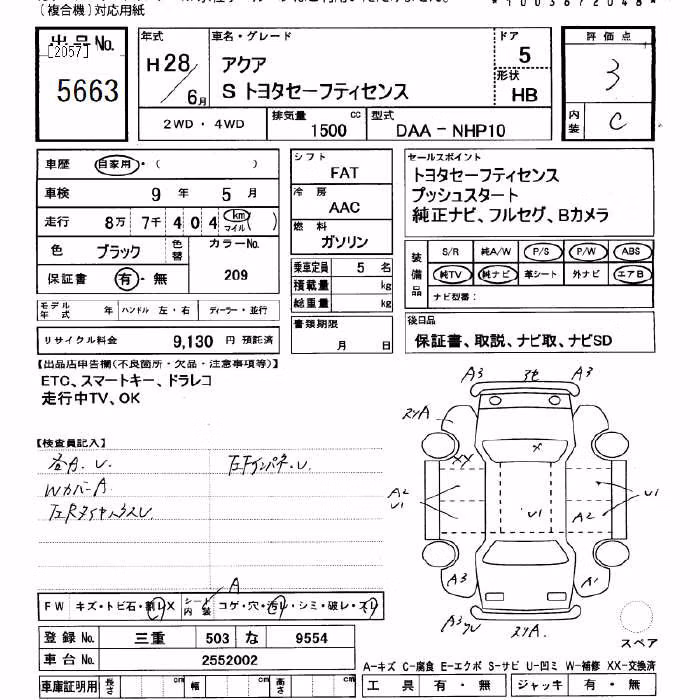 (複合機)対応用紙
*1003672048*
出品No.
[2057]
5663
年式
H28/6月
車名・グレード
アクア
S トヨタセーフティセンス
ドア
5
形状
HB
2WD・4WD
排気量
1500 cc
型式
DAA-NHP10
評価点
3
内装
C
車歴 自家用・( )
車検 9年 5月
走行 8万 7千 4 0 4 km マイル ( )
色 ブラック 色替
カラーNo.
209
保証書 有・無
モデル年式 年 ハンドル 左・右 ディーラー・並行
リサイクル料金 9,130 円 預託済
シフト
FAT
冷房
AAC
燃料
ガソリン
乗車定員 5 名
積載量 kg
総重量 kg
書類期限
月 日
セールスポイント
トヨタセーフティセンス
プッシュスタート
純正ナビ、フルセグ、Bカメラ
装備品
S/R 純A/W P/S P/W ABS
純TV 純ナビ 革シート 外ナビ エアB
ナビ型番:
後日品
保証書、取説、ナビ取、ナビSD
【出品店申告欄(不良箇所・欠品・注意事項等)】
ETC、スマートキー、ドラレコ
走行中TV、OK
【検査員記入】
各A.U.
WカバーA
A3 A3
A
XX
X
A2
U1
U1
U1
A2
A3
A1
スペア
FW キズ・トビ石・割レX シート内装 コゲ・穴・汚レ・シミ・破レ・スレ
A
登録No. 三重 503 な 9554
車台No. 2552002
車庫証明用 長さ cm 幅 cm 高さ cm
A-キズ C-腐食 E-エクボ S-サビ U-凹ミ W-補修 XX-交換済
工具 有・無 ジャッキ 有・無